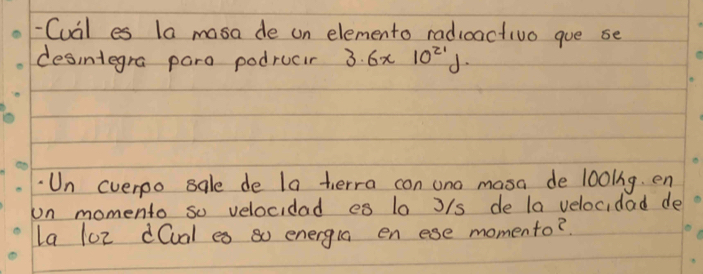 -Cuál es la masa de un elemento radioactivo que se
desintegra para podrucir 3.6x 10²¹ J.
·Un cuerpo sale de la tierra con una masa de 100kg. en
un momento su velocidad es lo 3/5 de la velocidad de
la luz ¿Cual es su energia en ese momento?.